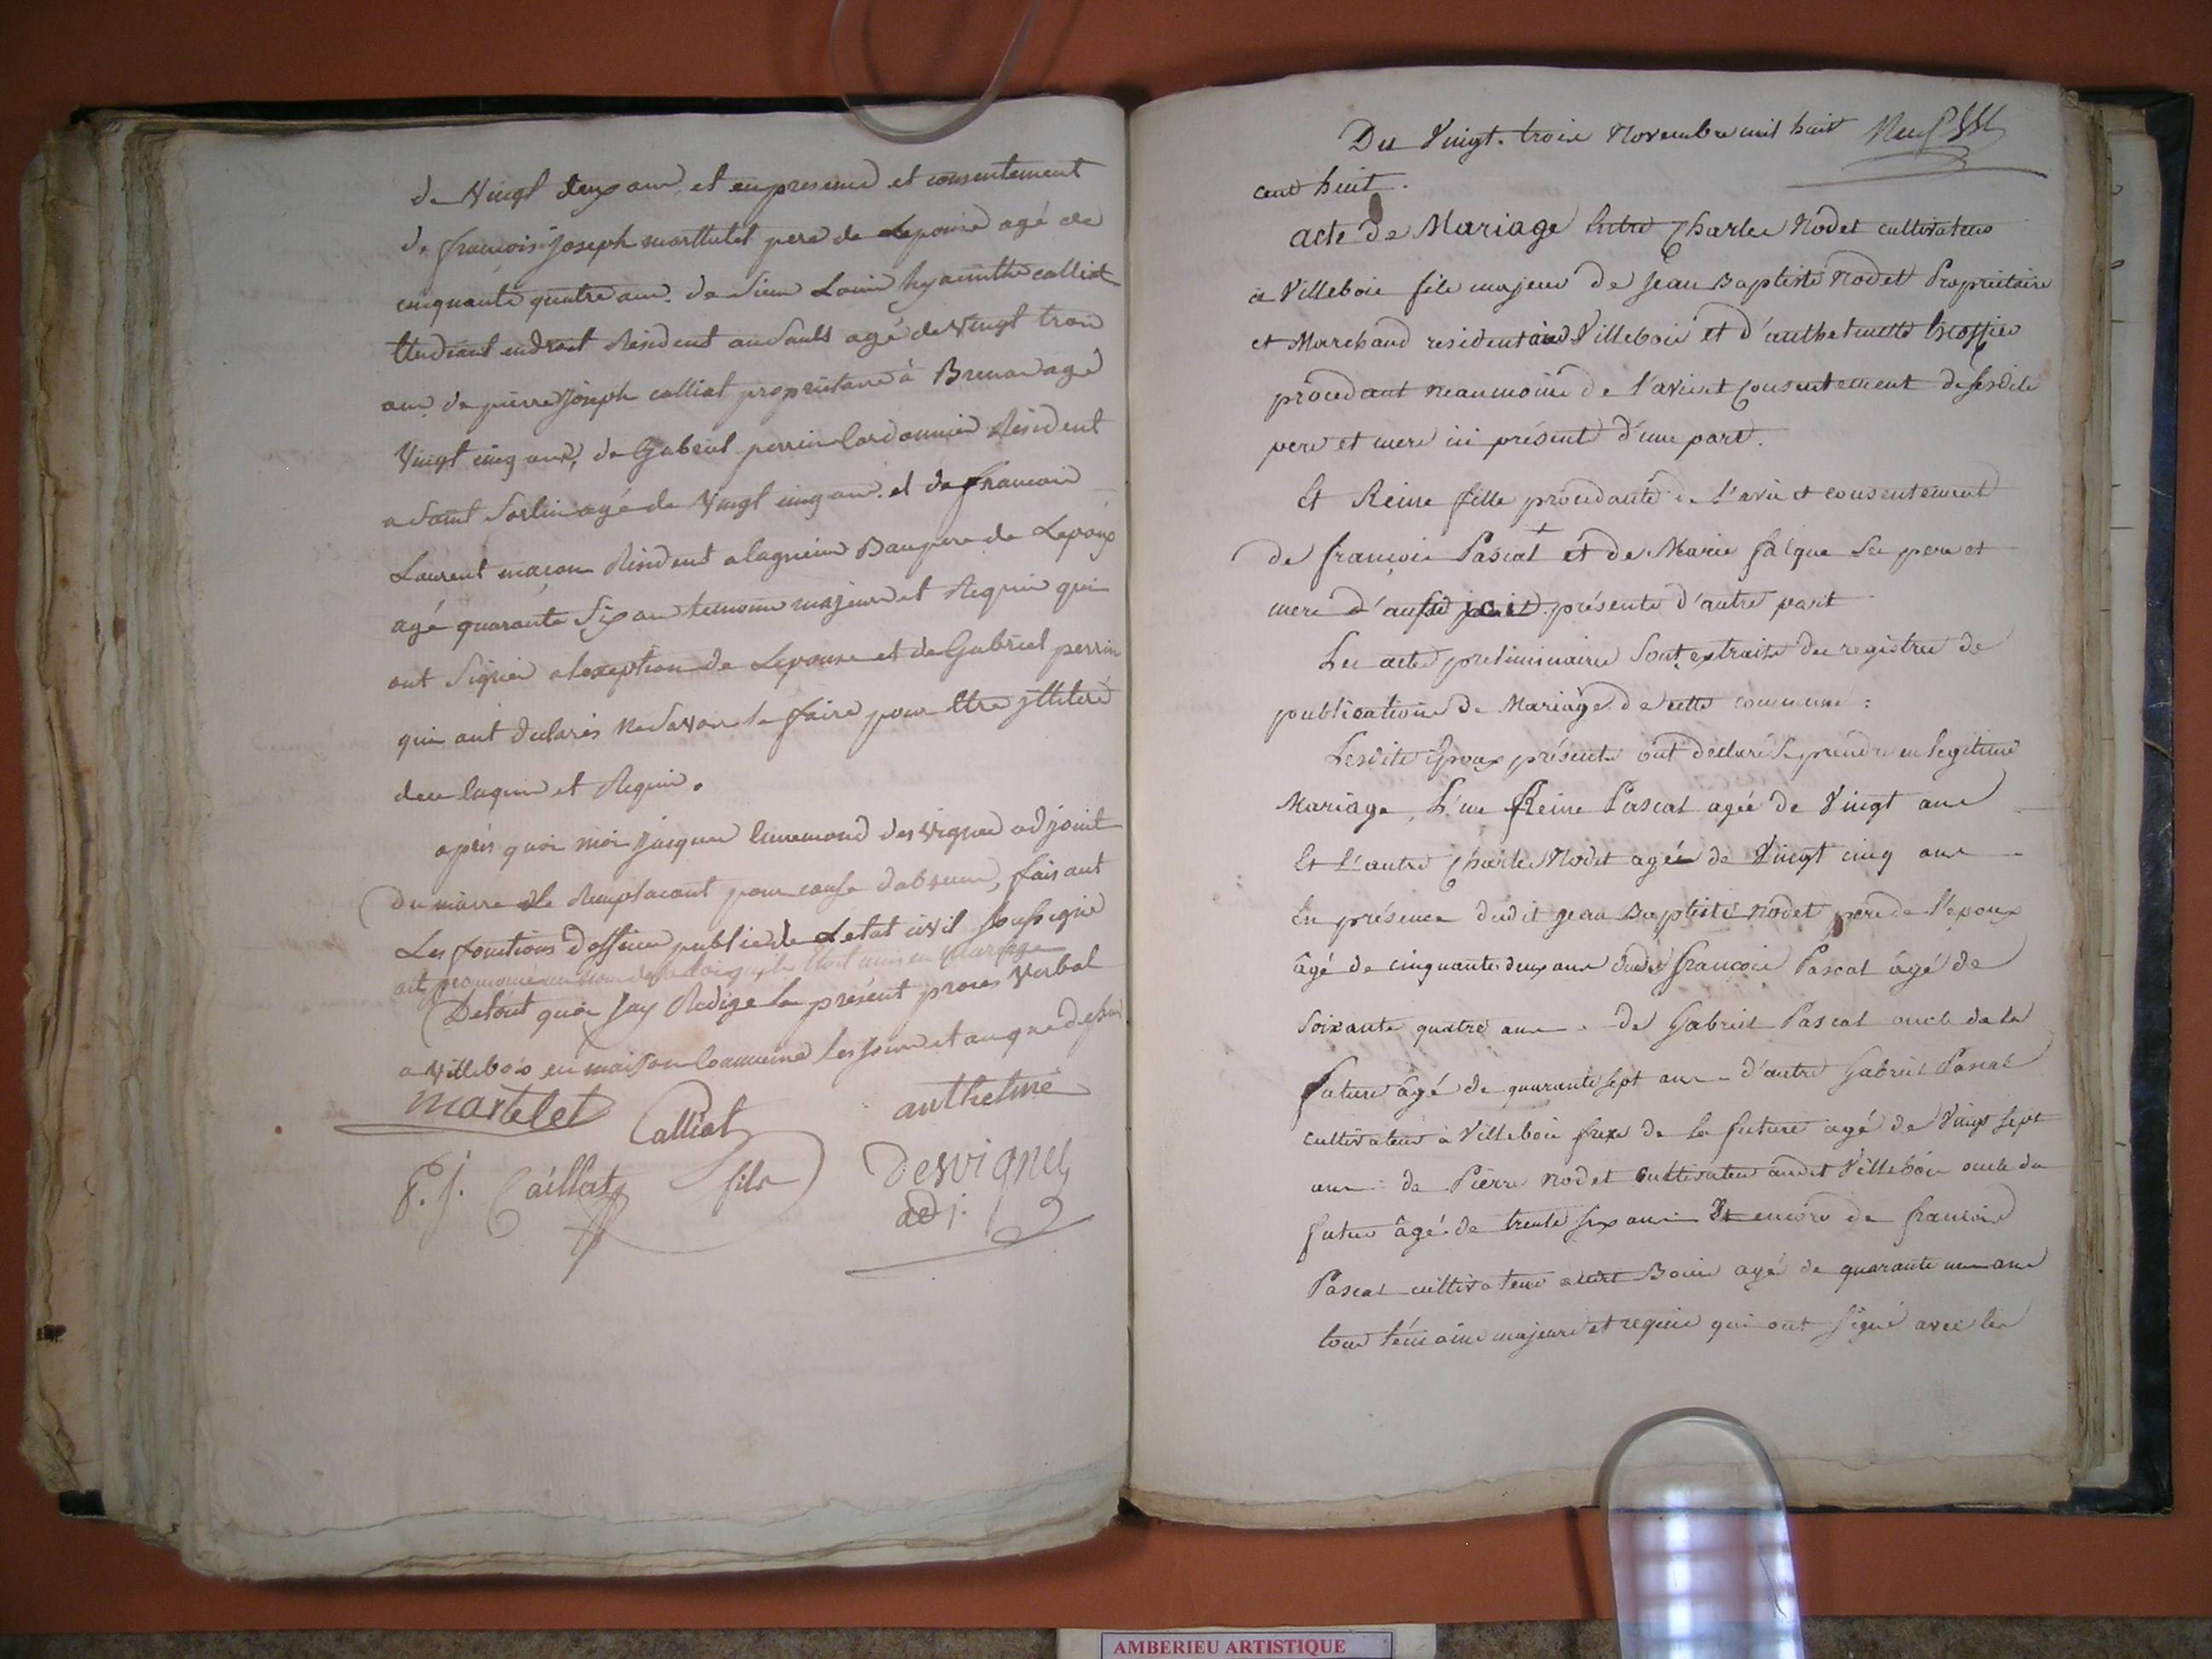 de Vingt deux ans et en presence et consentement
de françois joseph marthelet pere de Lepouse agé de
cinquante quatre ans. de Sieur Louis hyacinthe calliat
Etudiant endroit Résident au Sault agé de Vingt trois
ans de pierre joseph calliat propriétaire à Brenaz agé
Vingt cinq ans, de Gabriel perrin Cordonnier Résident
a Saint Sorlin agé de Vingt cinq ans. et de francois
Laurent maçon Résident a lagnieu Baupere de Lepoux
agé quarante Six ans temoins majeurs et Requis qui
ont Signés a lexeption de Lepouse et de Gabriel perrin
qui ont declarés ne Savoir le faire pour Etre jlliteré
de ce Enquis et Requis.
aprés quoi moi jacques Ennemond des Vignes adjoint
Du maire le Remplacant pour cause dabsence, faisant
Les fonctions Dofficier public de Letat civil Soussigné
ait prononcé au nom de la loi quils Etoit unis en Mariage
De tout quoi Jay Rédigé le présent procés Verbal
a Villebois en maison Commune les jour et an que dessus
martelet
Calliat
anthelme
P. J. Caillat
fils
Desvignes
adj.
Du Vingt. trois Novembre mil huit
Neuf
cent huit.
acte de Mariage Entre Charles Nodet cultivateur
à Villebois fils majeur de Jean Baptiste Nodet Propriétaire
et Marchand resident aud Villebois et d'anthelmette Escoffier
procedant neanmoins de l'avis et Consentement de sesdits
pere et mere ici présents d'une part.
Et Reine fille procedante de l'avis et consentement
de françois Pascal et de Marie Falque Ses pere et
mere d' aussi ici présents d'autre part
Les actes preliminaires Sont extraits du registre de
publications de Mariage de cette commune :
Lesdits Epoux présents ont declaré Se prendre en legitime
Mariage, L'une Reine Pascal agée de Vingt ans
Et L'autre Charles Nodet agée de Vingt cinq ans
En présence dudit jean Baptiste Nodet pere de l'epoux
âgé de cinquante deux ans dudit françois Pascal âgé de
Soixante quatre ans. de Gabriel Pascal oncle de la
future âgé de quarante sept ans. d'autre Gabriel Pascal
cultivateur à Villebois frere de la future agé de Vingt sept
ans. de Pierre Nodet cultivateur audit Villebois oncle du
futur âgé de trente six ans Et encore de francois
Pascal cultivateur à Bouis agé de quarante un ans
tous témoins majeurs et requis qui ont Signé avec les
AMBERIEU ARTISTIQUE